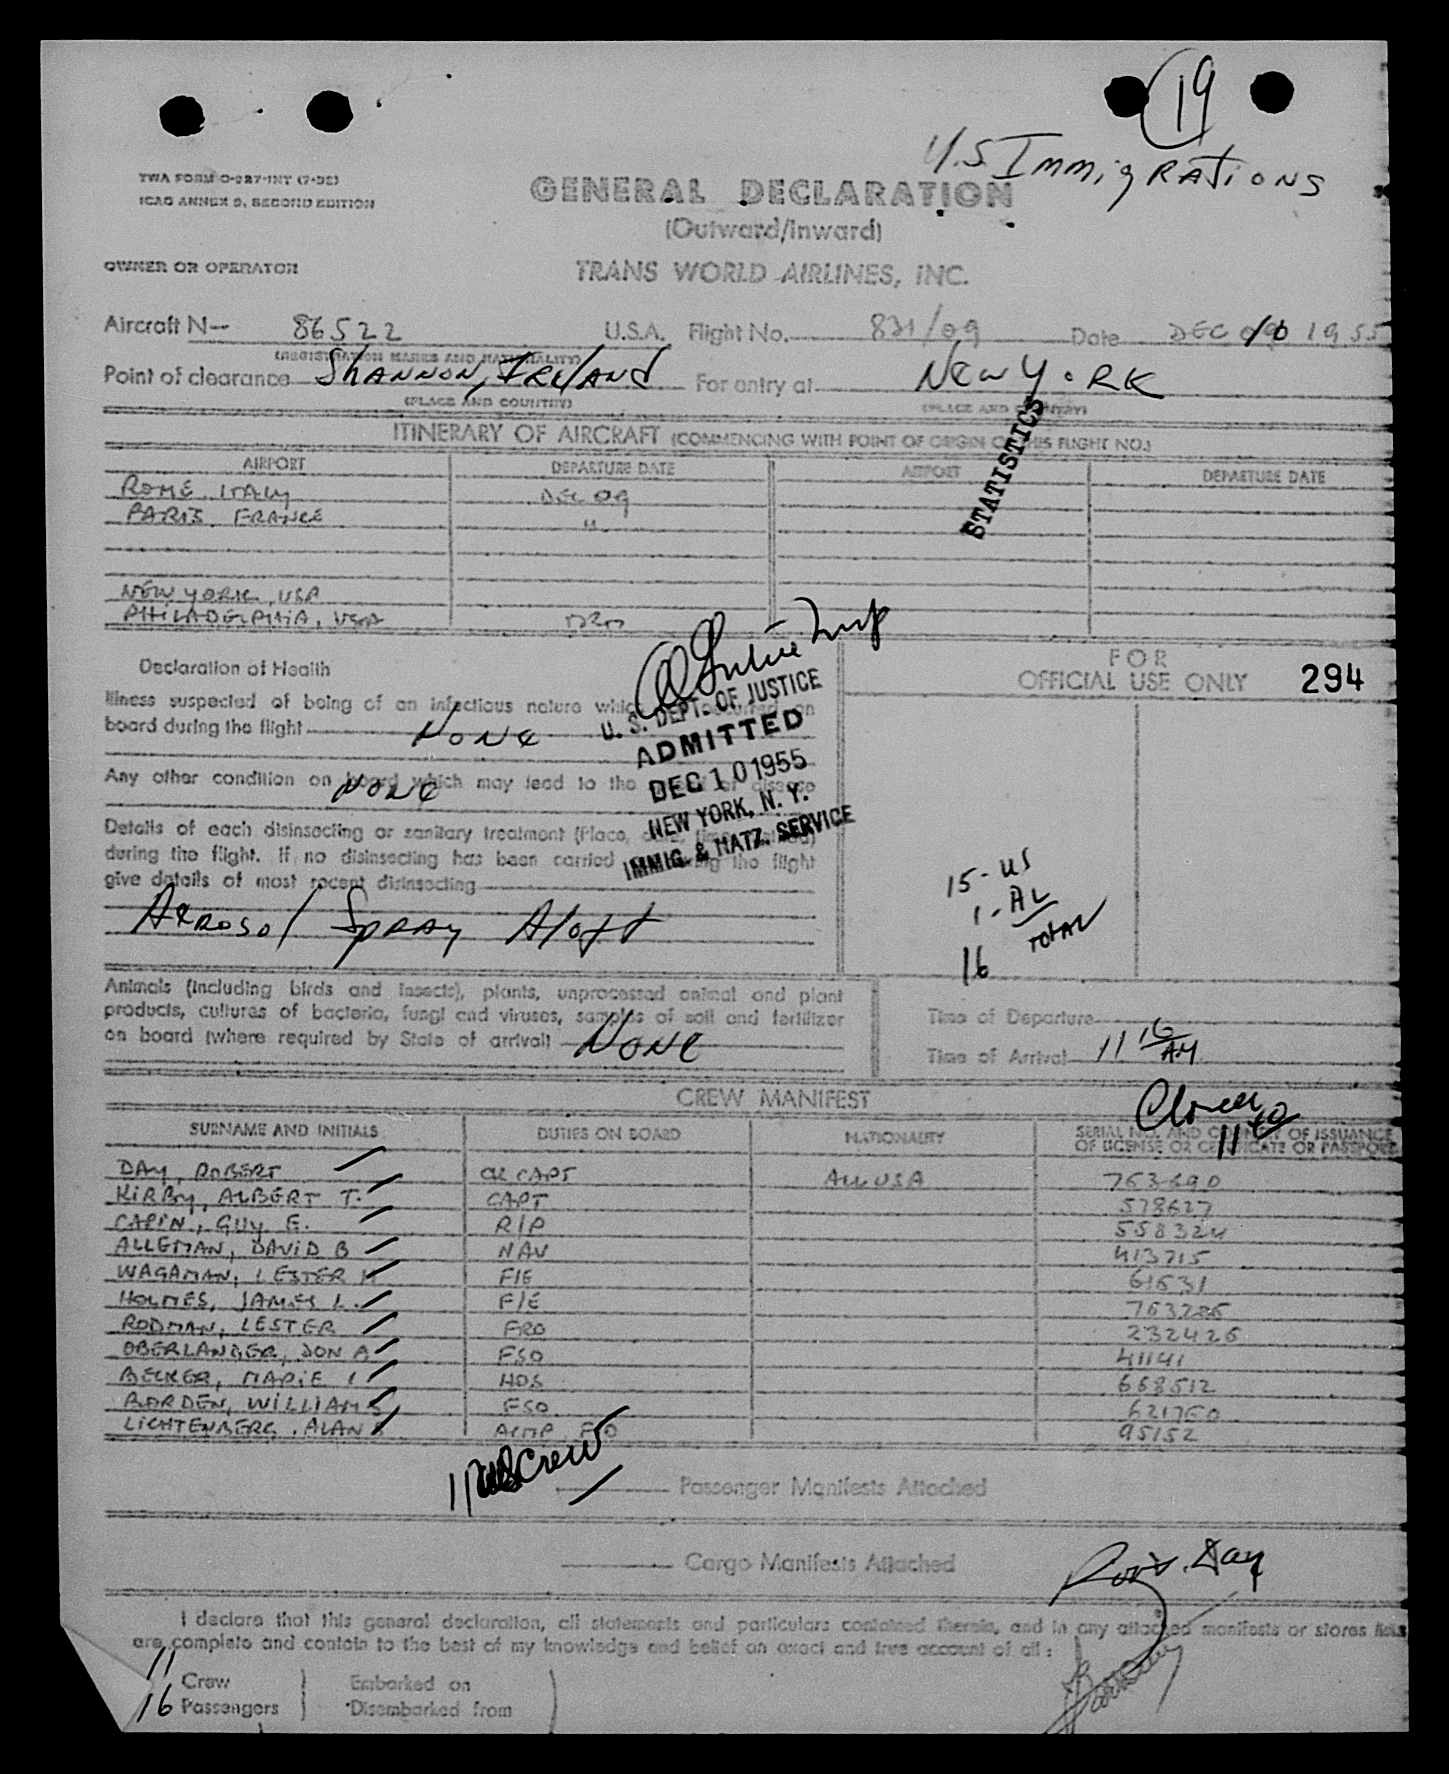 19
U.S. Immigrations
TWA FORM O-927-INT (7-52)
ICAO ANNEX 9, SECOND EDITION
GENERAL DECLARATION
(Outward/Inward)
OWNER OR OPERATOR
TRANS WORLD AIRLINES, INC.
Aircraft N— 86522 U.S.A. Flight No. 831/09 Date DEC 10 1955
(REGISTRATION MARKS AND NATIONALITY)
Point of clearance Shannon, Ireland For entry at New York
(PLACE AND COUNTRY) (PLACE AND COUNTRY)
STATISTICS
ITINERARY OF AIRCRAFT (COMMENCING WITH POINT OF ORIGIN OF THIS FLIGHT NO.)
AIRPORT DEPARTURE DATE AIRPORT DEPARTURE DATE
ROME, ITALY DEC 09
PARIS, FRANCE "
NEW YORK, USA
PHILADELPHIA, USA
Declaration of Health
FOR
OFFICIAL USE ONLY 294
Illness suspected of being of an infectious nature which has occurred on
board during the flight None
U. S. DEPT. OF JUSTICE
ADMITTED
DEC 10 1955
NEW YORK, N. Y.
IMMIG. & NATZ. SERVICE
Any other condition on board which may lead to the spread of disease
None
Details of each disinsecting or sanitary treatment (Place, date, time, method)
during the flight. If no disinsecting has been carried out during the flight
give details of most recent disinsecting
Aerosol Spray Aloft
15 - US
1 - AL
16 TOTAL
Animals (including birds and insects), plants, unprocessed animal and plant
products, cultures of bacteria, fungi and viruses, samples of soil and fertilizer
on board (where required by State of arrival) None
Time of Departure
Time of Arrival 11 16 AM
CREW MANIFEST
SURNAME AND INITIALS DUTIES ON BOARD NATIONALITY SERIAL NO. AND COUNTRY OF ISSUANCE
OF LICENSE OR CERTIFICATE OR PASSPORT
DAY, ROBERT CK CAPT ALL USA 763690
KIRBY, ALBERT T. CAPT 578627
CAPIN, GUY E. R/P 558324
ALLEMAN, DAVID B NAV 413715
WAGAMAN, LESTER H F/E 61631
HOLMES, JAMES L. F/E 763286
RODMAN, LESTER FRO 232426
OBERLANDER, DON A FSO 41141
BECKER, MARIE I HOS 668512
BORDEN, WILLIAM S FSO 621760
LICHTENBERG, ALAN FSO 95152
Passenger Manifests Attached
Cargo Manifests Attached
I declare that this general declaration, all statements and particulars contained therein, and in any attached manifests or stores lists
are complete and contain to the best of my knowledge and belief an exact and true account of all:
11 Crew Embarked on
16 Passengers Disembarked from